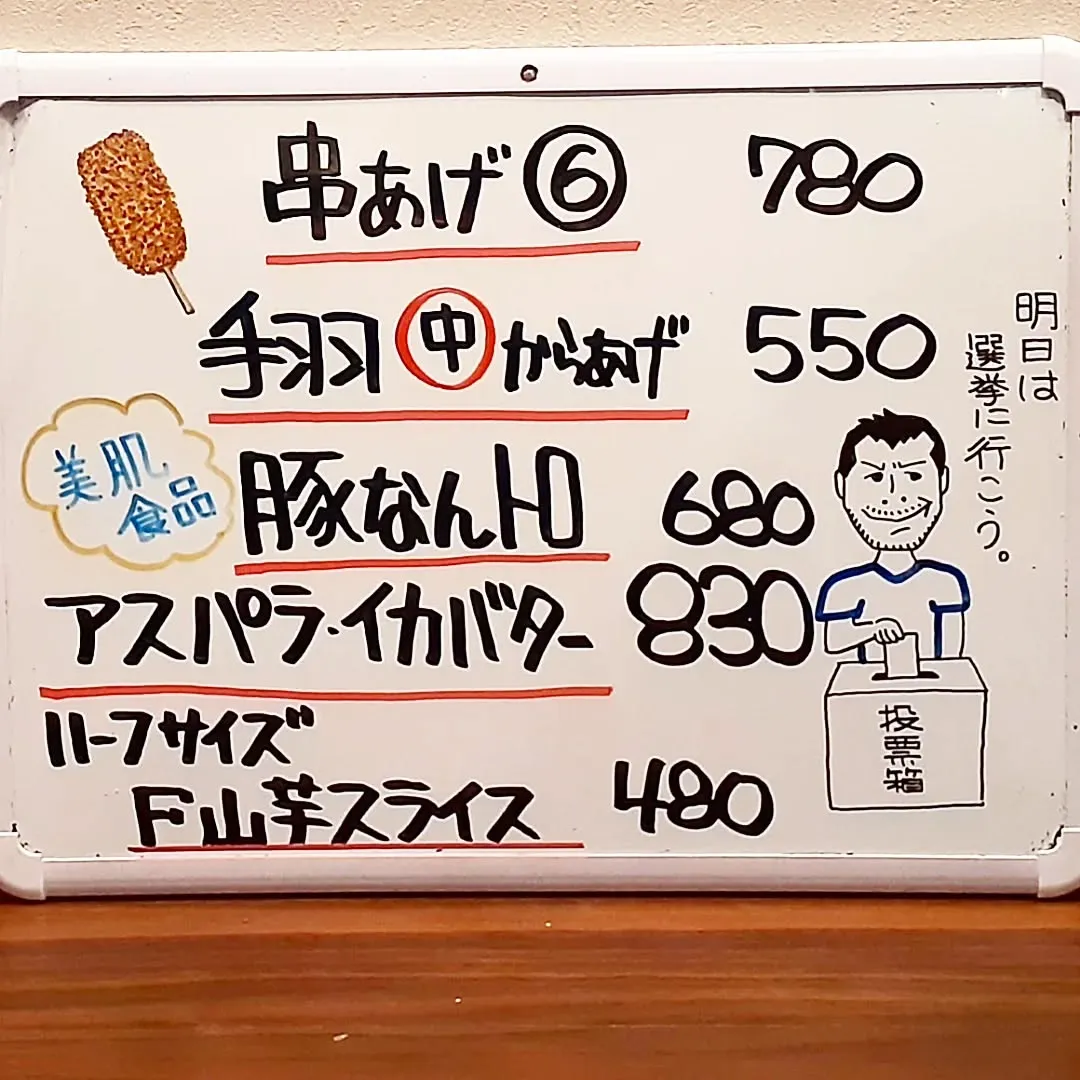 串あげ⑥ 780
手羽㊥からあげ 550
美肌
食品
豚なんトロ 680
アスパラ・イカバター 830
ハーフサイズ
F山芋スライス 480
明日は
選挙に行こう。
投票箱